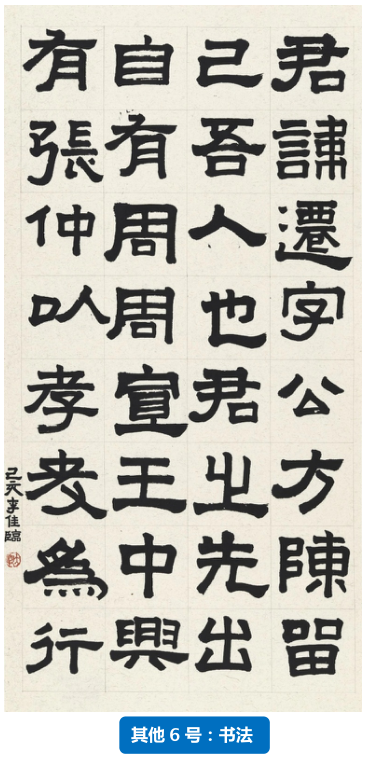 君諱遷字公方陳留
己吾人也君之先出
自有周周宣王中興
有張仲以孝友為行
己亥李佳臨
其他6号：书法